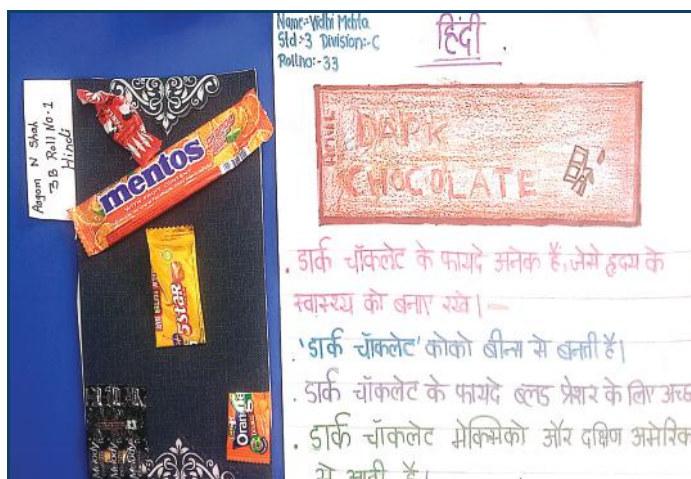 Aagam N Shah
3B Roll No-1
Hindi
mentos
WITH FRUIT CONTENT
5STAR
Orange
Melody
Name:-Vidhi Mehta
Std:-3 Division:-C
Rollno:-33
हिंदी
DARK
CHOCOLATE
. डार्क चॉकलेट के फायदे अनेक हैं, जैसे हृदय के
स्वास्थ्य को बनाए रखे। —
. 'डार्क चॉकलेट' कोको बीन्स से बनती है।
. डार्क चॉकलेट के फायदे ब्लड प्रेशर के लिए अच्छ
. डार्क चॉकलेट मेक्सिको और दक्षिण अमेरिक
से आती है।